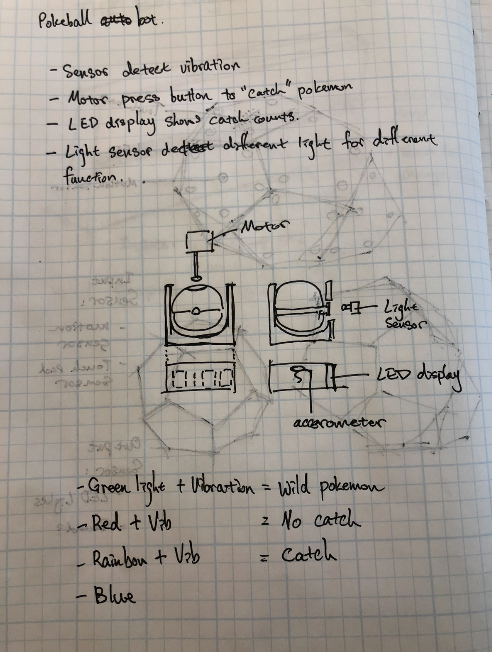 Pokeball bot.
- Sensor detect vibration
- Motor press button to "catch" pokemon
- LED display shows catch counts.
- Light sensor detect different light for different
function.
Motor
Light
Sensor
LED display
accerometer
- Green light + Vibration = Wild pokemon
- Red + Vib = No catch
- Rainbow + Vib = Catch
- Blue
Input
Sensor:
- motion
Sensor
- Touch Pad
Sensor
Output